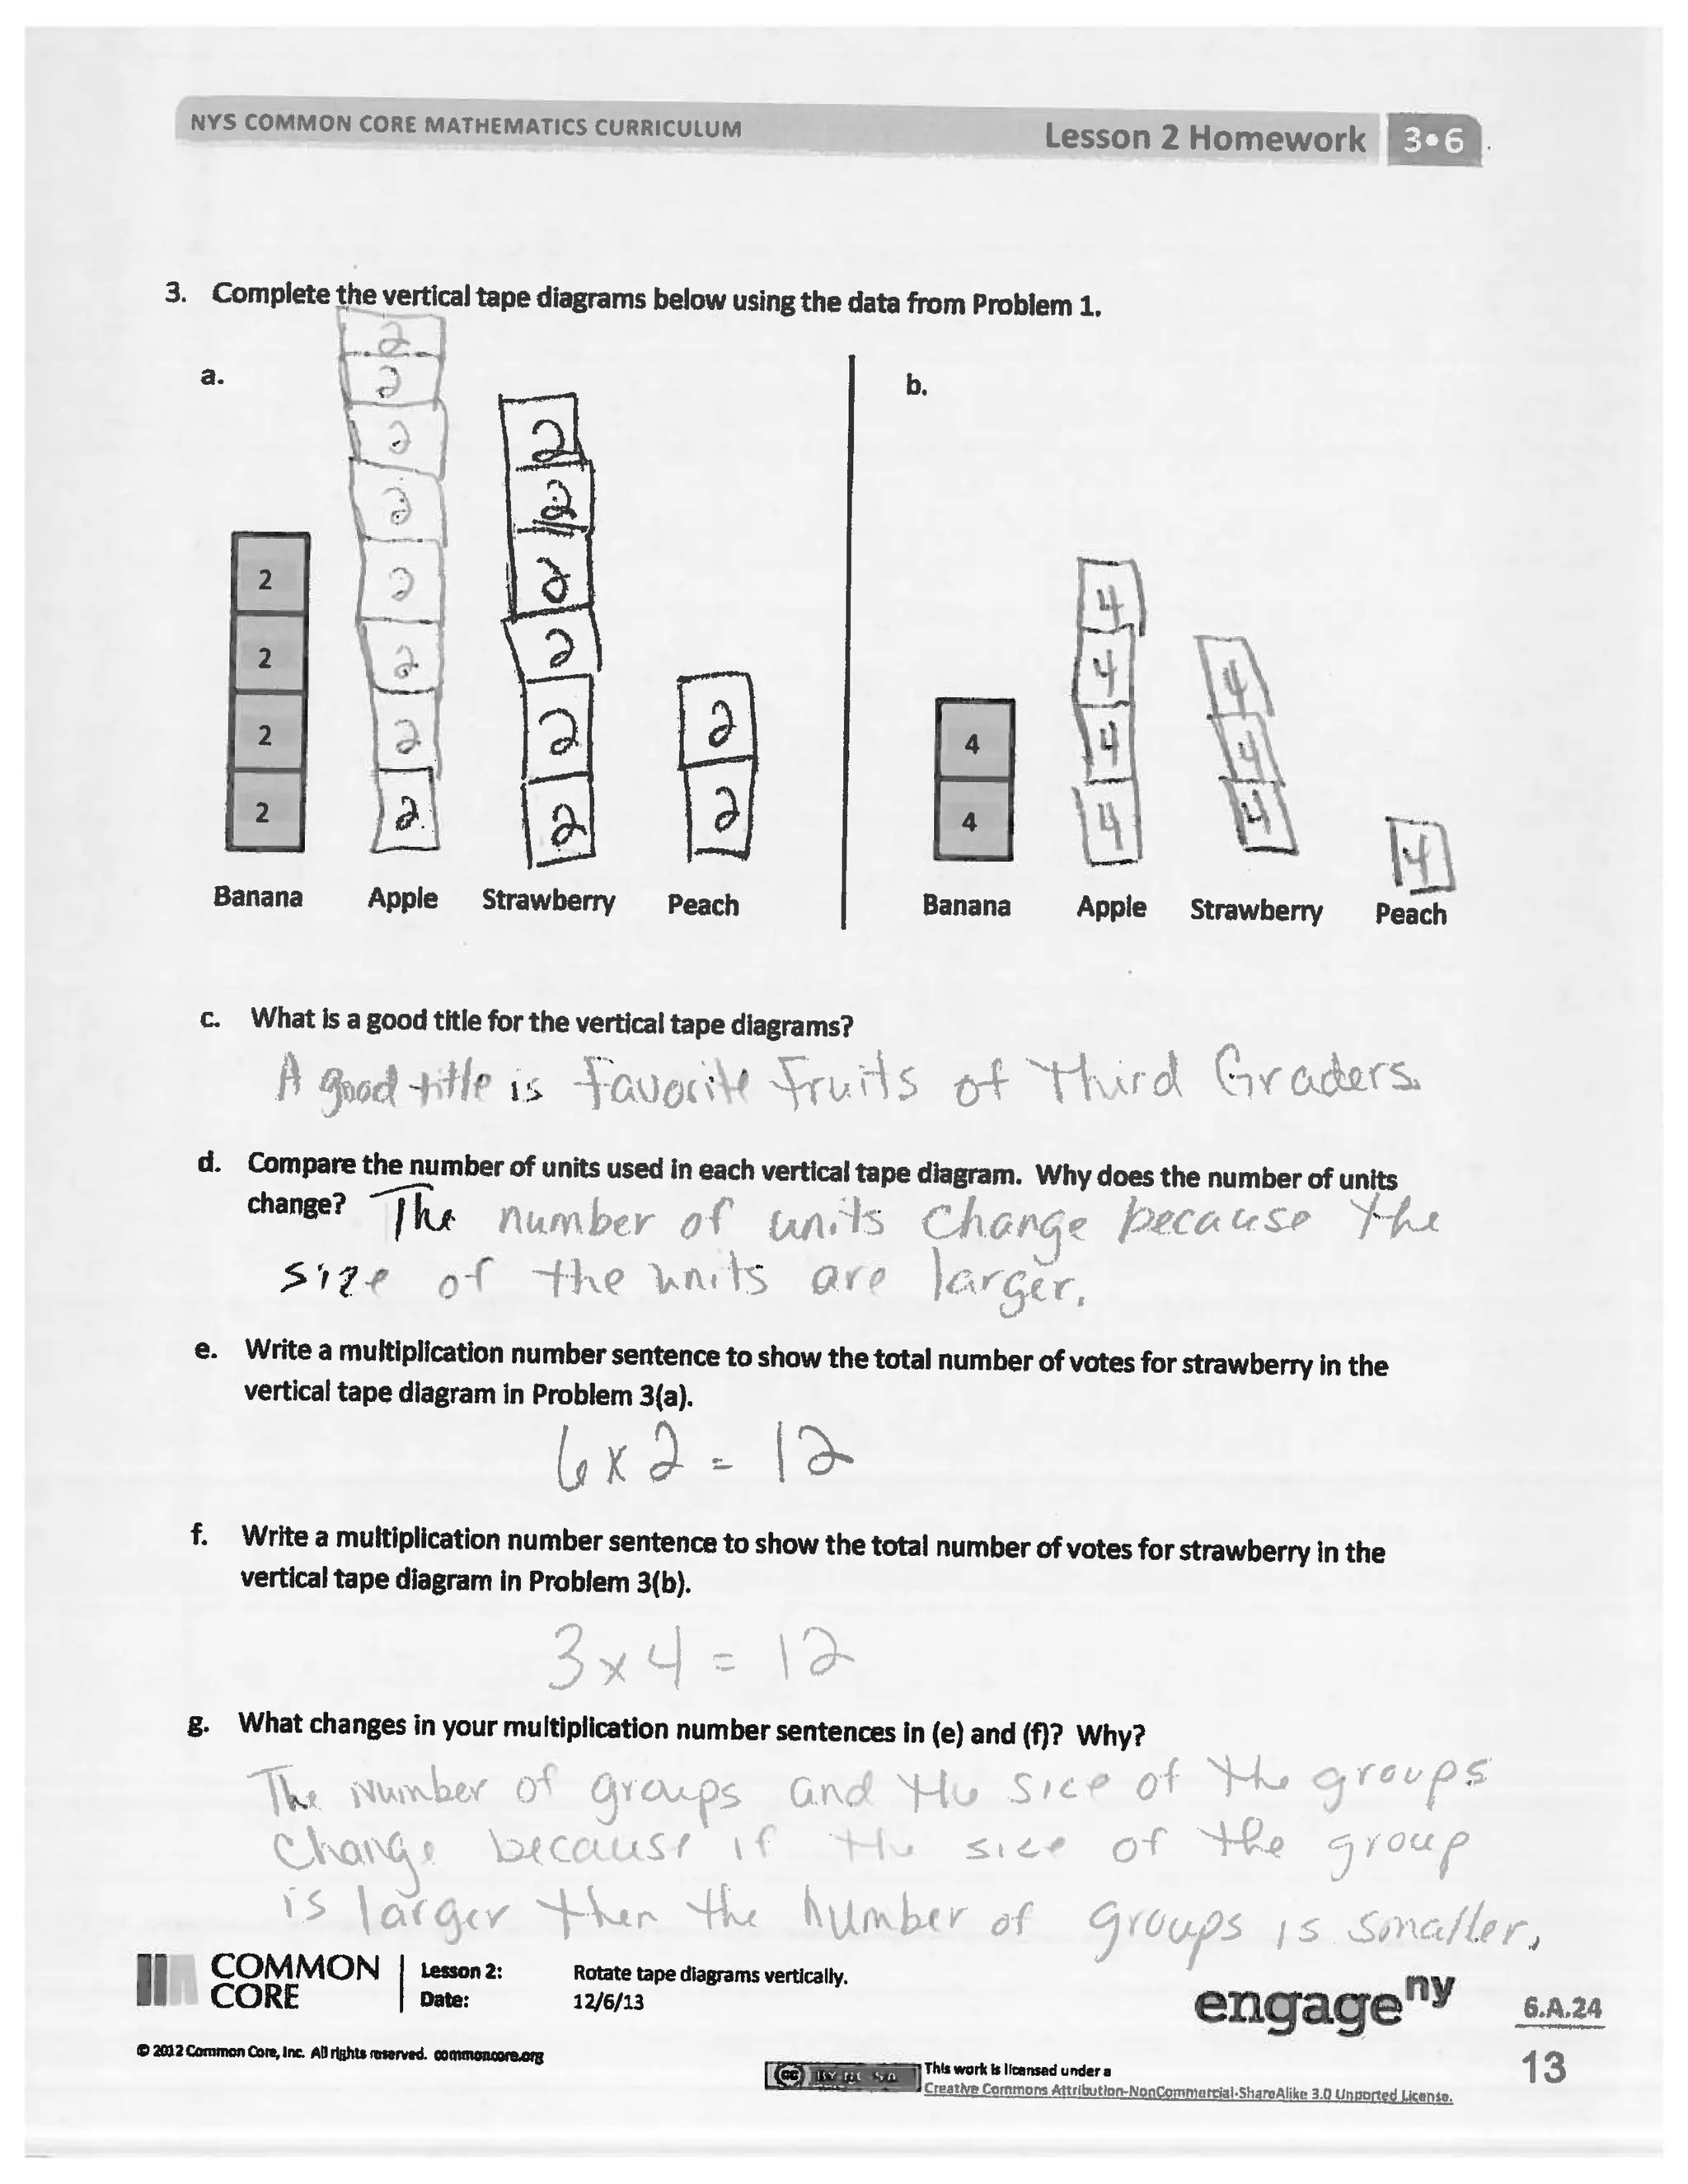 NYS COMMON CORE MATHEMATICS CURRICULUM
Lesson 2 Homework 3•6
3. Complete the vertical tape diagrams below using the data from Problem 1.
a.
2
2
2
2
Banana
2
2
2
2
2
2
2
2
Apple
2
2
2
2
2
2
Strawberry
2
2
Peach
b.
4
4
Banana
4
4
4
4
Apple
4
4
4
Strawberry
4
Peach
c. What is a good title for the vertical tape diagrams?
A good title is Favorite Fruits of Third Graders.
d. Compare the number of units used in each vertical tape diagram. Why does the number of units
change? The number of units change because the
size of the units are larger.
e. Write a multiplication number sentence to show the total number of votes for strawberry in the
vertical tape diagram in Problem 3(a).
6 x 2 = 12
f. Write a multiplication number sentence to show the total number of votes for strawberry in the
vertical tape diagram in Problem 3(b).
3 x 4 = 12
g. What changes in your multiplication number sentences in (e) and (f)? Why?
The Number of groups and the sice of the groups
change because if the sice of the group
is larger then the number of groups is smaller.
COMMON
CORE
Lesson 2: Rotate tape diagrams vertically.
Date: 12/6/13
engage ny
6.A.24
© 2012 Common Core, Inc. All rights reserved. commoncore.org
cc BY NC SA
This work is licensed under a
Creative Commons Attribution-NonCommercial-ShareAlike 3.0 Unported License.
13